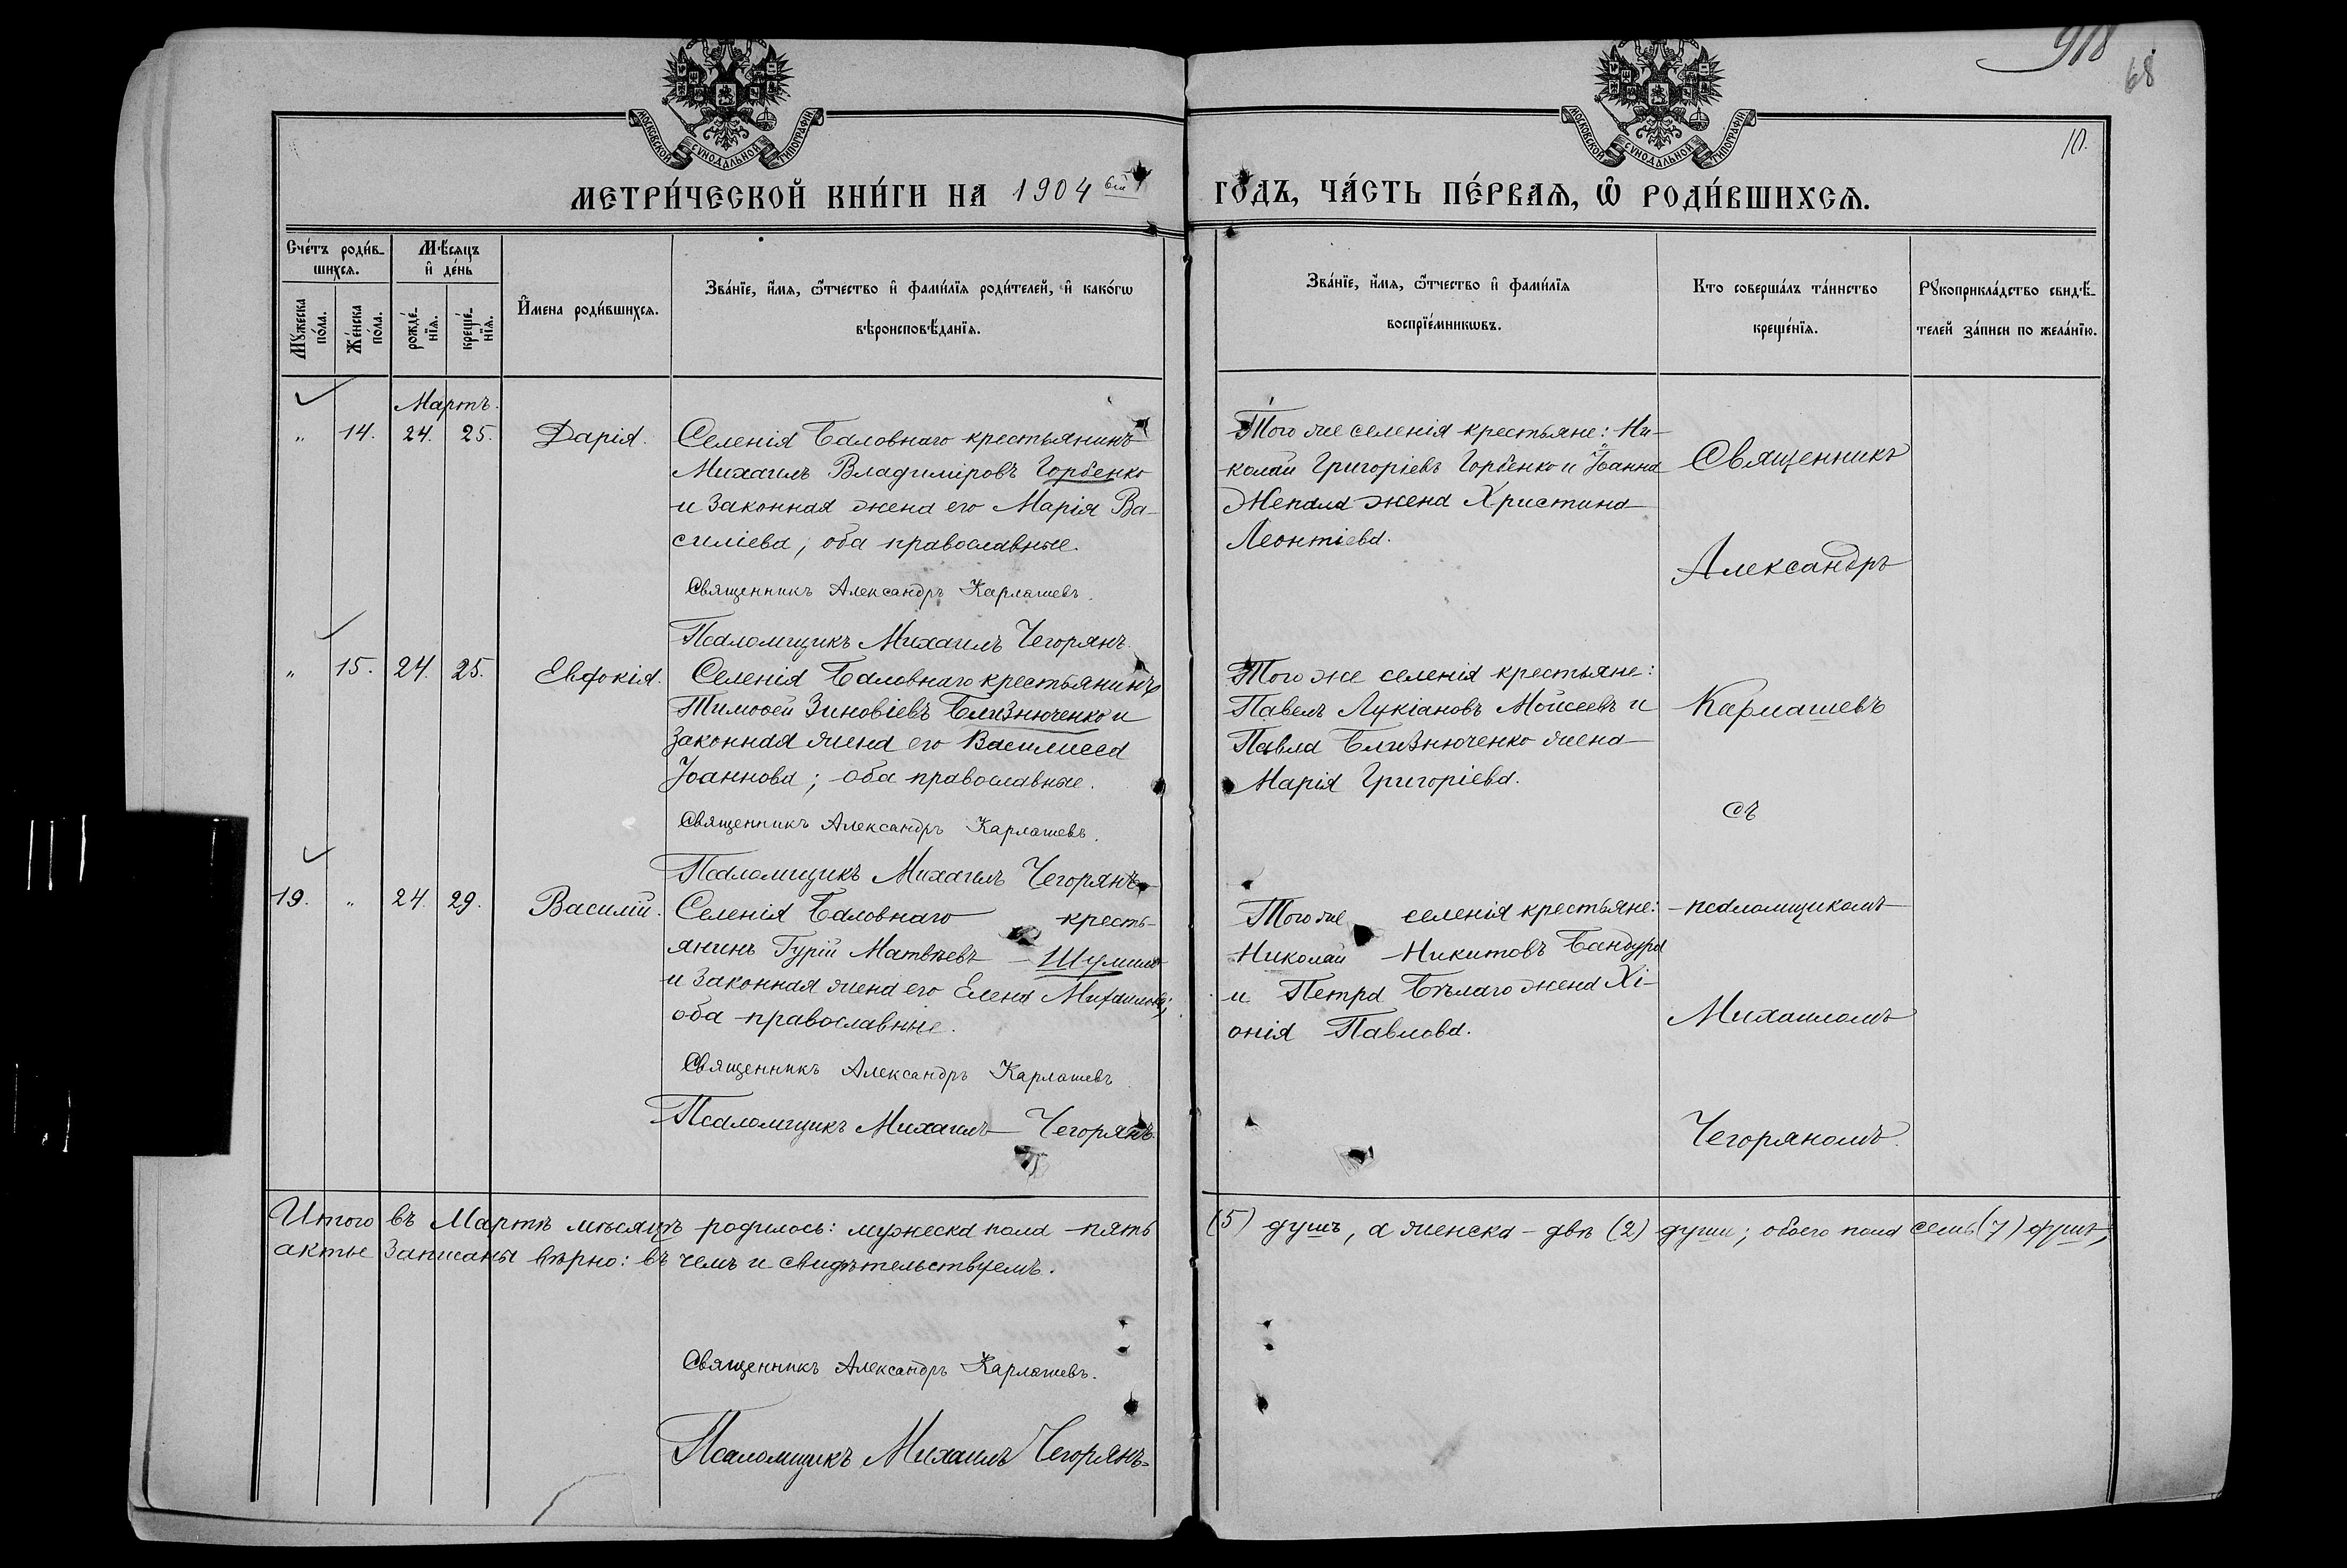 МОСКОВСКОЙ СѴНОДАЛЬНОЙ ТИПОГРАФІИ
МОСКОВСКОЙ СѴНОДАЛЬНОЙ ТИПОГРАФІИ
918
68
10.
МЕТРИ́ЧЕСКОЙ КНИ́ГИ НА 1904 ГО́ДЪ, ЧА́СТЬ ПЕ́РВАѦ, Ѽ РОДИ́ВШИХСѦ.
Сче́тъ роди́в-
шихсѧ.
Мѣ́сѧцъ
и҆ де́нь
Мꙋ́жеска
по́ла.
Же́нска
по́ла.
рожде́-
нїѧ.
креще́-
нїѧ.
И҆мена роди́вшихсѧ.
Зва́нїе, и҆́мѧ, ѻ҆́тчество и҆ фами́лїѧ роди́телей, и҆ како́гѡ
вѣроисповѣ́данїѧ.
Зва́нїе, и҆́мѧ, ѻ҆́тчество и҆ фами́лїѧ
воспрїе́мникѡвъ.
Кто соверша́лъ та́инство
креще́нїѧ.
Рꙋкоприкла́дство свидѣ́-
телей за́писи по жела́нїю.
Мартъ.
„ 14. 24. 25. Дарія.
Селенія Баловнаго крестьянинъ
Михаилъ Владиміровъ Горбенко
и законная жена его Марія Ва-
силіева; оба православные.
Священникъ Александръ Карлашевъ.
Псаломщикъ Михаилъ Чегорянъ.
Того же селенія крестьяне: Ни-
колай Григоріевъ Горбенко и Іоанна
Жепала жена Христина
Леонтіева.
„ 15. 24. 25. Евдокія.
Селенія Баловнаго крестьянинъ
Тимоѳей Зиновіевъ Близнюченко и
законная жена его Василисса
Іоаннова; оба православные.
Священникъ Александръ Карлашевъ.
Псаломщикъ Михаилъ Чегорянъ
Того же селенія крестьяне:
Павелъ Лукіановъ Мойсеевъ и
Павла Близнюченко жена
Марія Григоріева.
19. „ 24. 29. Василій.
Селенія Баловнаго кресть-
янинъ Гурій Матвѣевъ Шумило
и законная жена его Елена Михаилова;
оба православные.
Священникъ Александръ Карлашевъ
Псаломщикъ Михаилъ Чегорянъ.
Того же селенія крестьяне:
Николай Никитовъ Бандура
и Петра Бѣлаго жена Хі-
онія Павлова.
Священникъ
Александръ
Карлашевъ
съ
псаломщикомъ
Михаиломъ
Чегоряномъ.
Итого въ Мартѣ мѣсяцѣ родилось: мужеска пола пять (5) душъ, а женска – двѣ (2) души; обоего пола семь (7) душъ,
акты записаны вѣрно: въ чемъ и свидѣтельствуемъ.
Священникъ Александръ Карлашевъ.
Псаломщикъ Михаилъ Чегорянъ